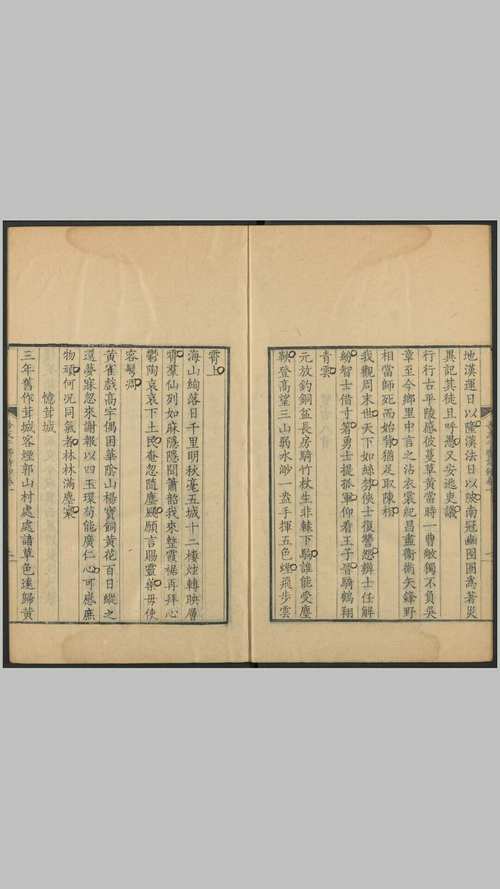 地漢運日以隆漢法日以陂南冠幽囹圄嵩著災
異記其徒且呼愚又安逃吏議
行行古平陵感彼蔓草黃當時一曹敞獨不負吳
章至今鄉里中言之沾衣裳紀昌盡衞術矢鋒野
相當師死而始背猶足取陳相
我觀周末世天下如絲棼俠士復讐怨辨士任解
紛智士借寸箸勇士提孤軍仰看王子晉騎鶴翔
青雲
元放釣銅盆長房騎竹杖生非轅下駒誰能受塵
鞅登高望三山弱水眇一盎手揮五色煙飛步雲
霄上
海山絢落日千里明秋毫五城十二樓炫轉映層
霄羣仙列如麻隱隱聞簫韶我來整霞裾再拜心
鬱陶哀哀下土民奄忽隨塵飇願言賜靈藥毋使
容鬢凋
黃雀戲高宇偶困華陰山楊寶飼黃花百日縱之
還夢寐忽來謝報以四玉環苟能廣仁心可應庶
物頑何況同氣者林林滿塵寰
憶茸城
三年舊作茸城客煙郭山村處處諳草色遠歸黃